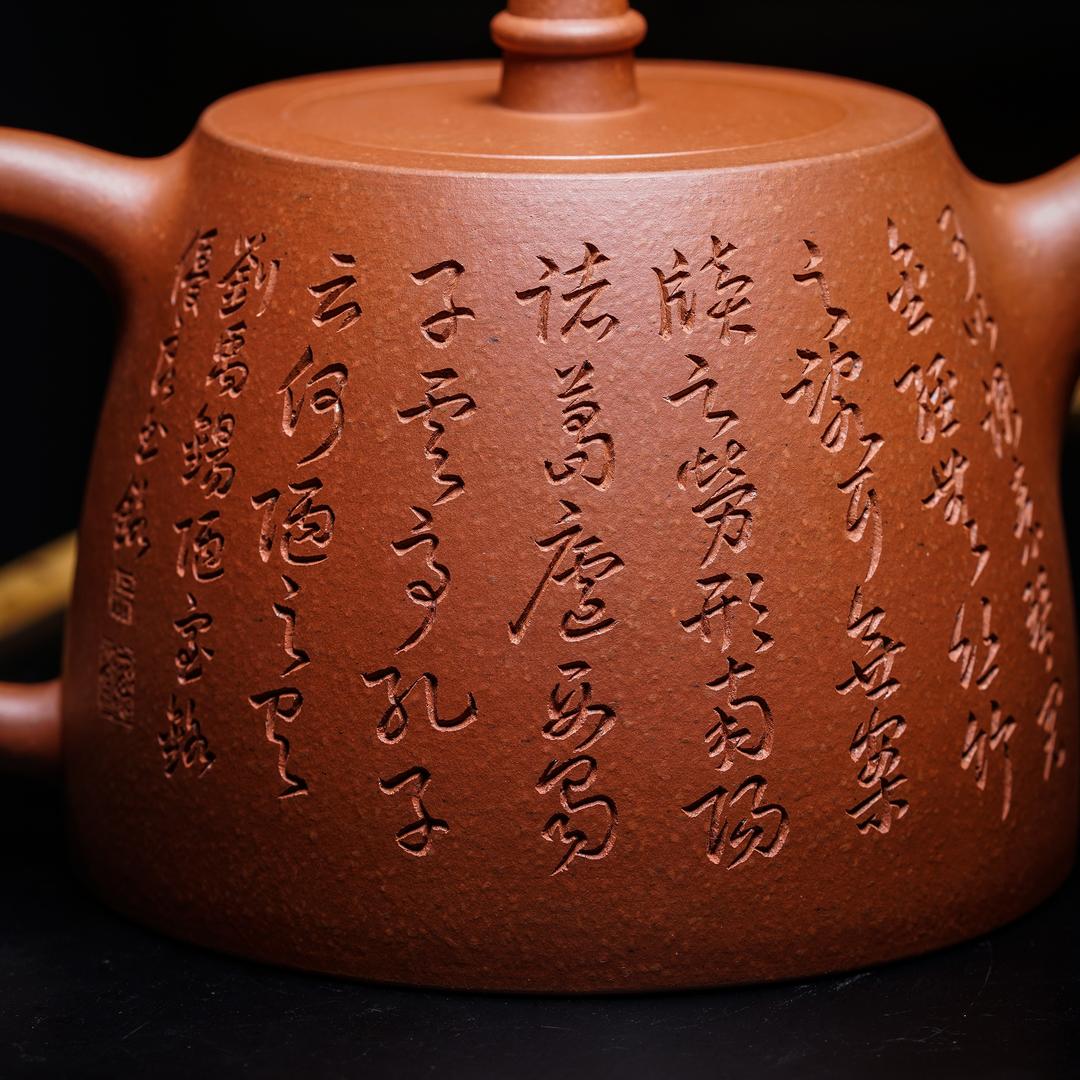 可以調素琴閱
金經無絲竹
之亂耳無案
牘之勞形南陽
諸葛廬西蜀
子雲亭孔子
云何陋之有
劉禹錫陋室銘